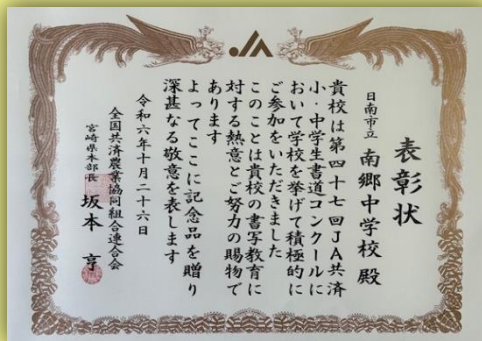 表彰状
日南市立 南郷中学校 殿
貴校は第四十七回JA共済
小・中学生書道コンクールに
おいて学校を挙げて積極的に
ご参加をいただきました
このことは貴校の書写教育に
対する熱意とご努力の賜物で
あります
よってここに記念品を贈り
深甚なる敬意を表します
令和六年十月二十六日
全国共済農業協同組合連合会
宮崎県本部長 坂本 亨